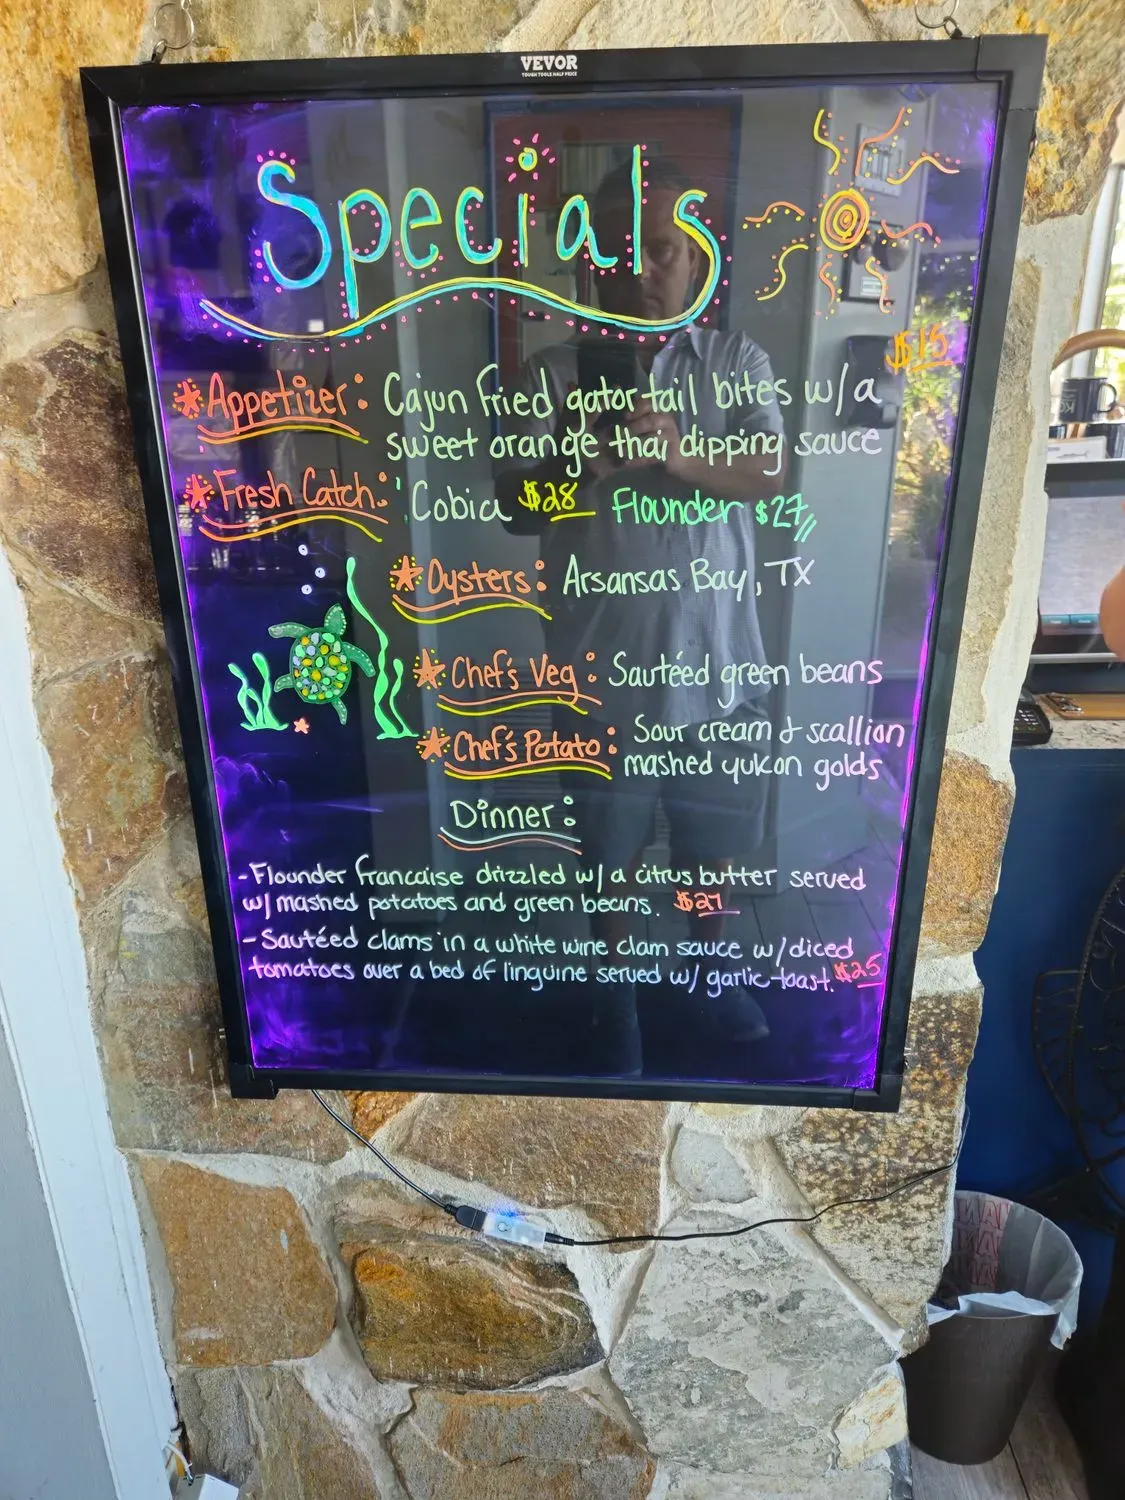 VEVOR
TOUGH TOOLS HALF PRICE
Specials
$15
Appetizer: Cajun fried gator tail bites w/a
sweet orange thai dipping sauce
Fresh Catch: Cobia $28 Flounder $27
Oysters: Arsansas Bay, TX
Chef's Veg: Sautéed green beans
Chef's Potato: Sour cream & scallion
mashed yukon golds
Dinner:
-Flounder francaise drizzled w/a citrus butter served
w/ mashed potatoes and green beans. $27
-Sautéed clams in a white wine clam sauce w/diced
tomatoes over a bed of linguine served w/ garlic toast. $25